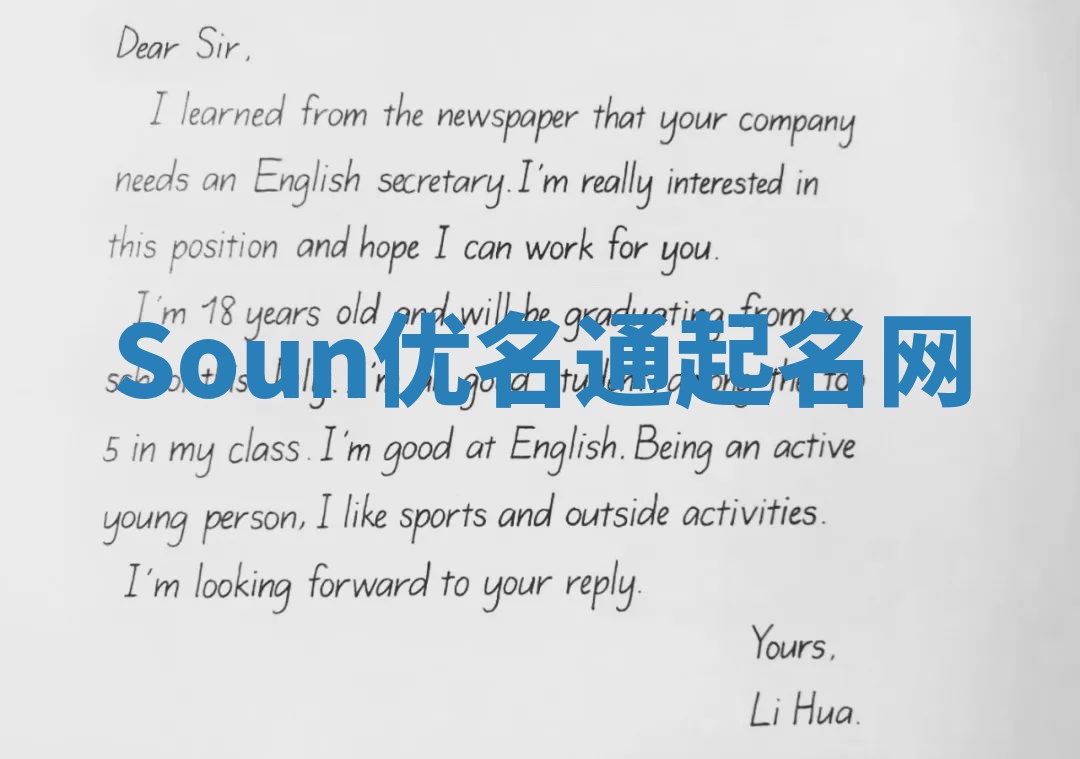 Dear Sir,
I learned from the newspaper that your company
needs an English secretary. I'm really interested in
this position and hope I can work for you.
I'm 18 years old and will be graduating from xx
Soun优名通起名网
school this July. I'm a good student among the top
5 in my class. I'm good at English. Being an active
young person, I like sports and outside activities.
I'm looking forward to your reply.
Yours,
Li Hua.